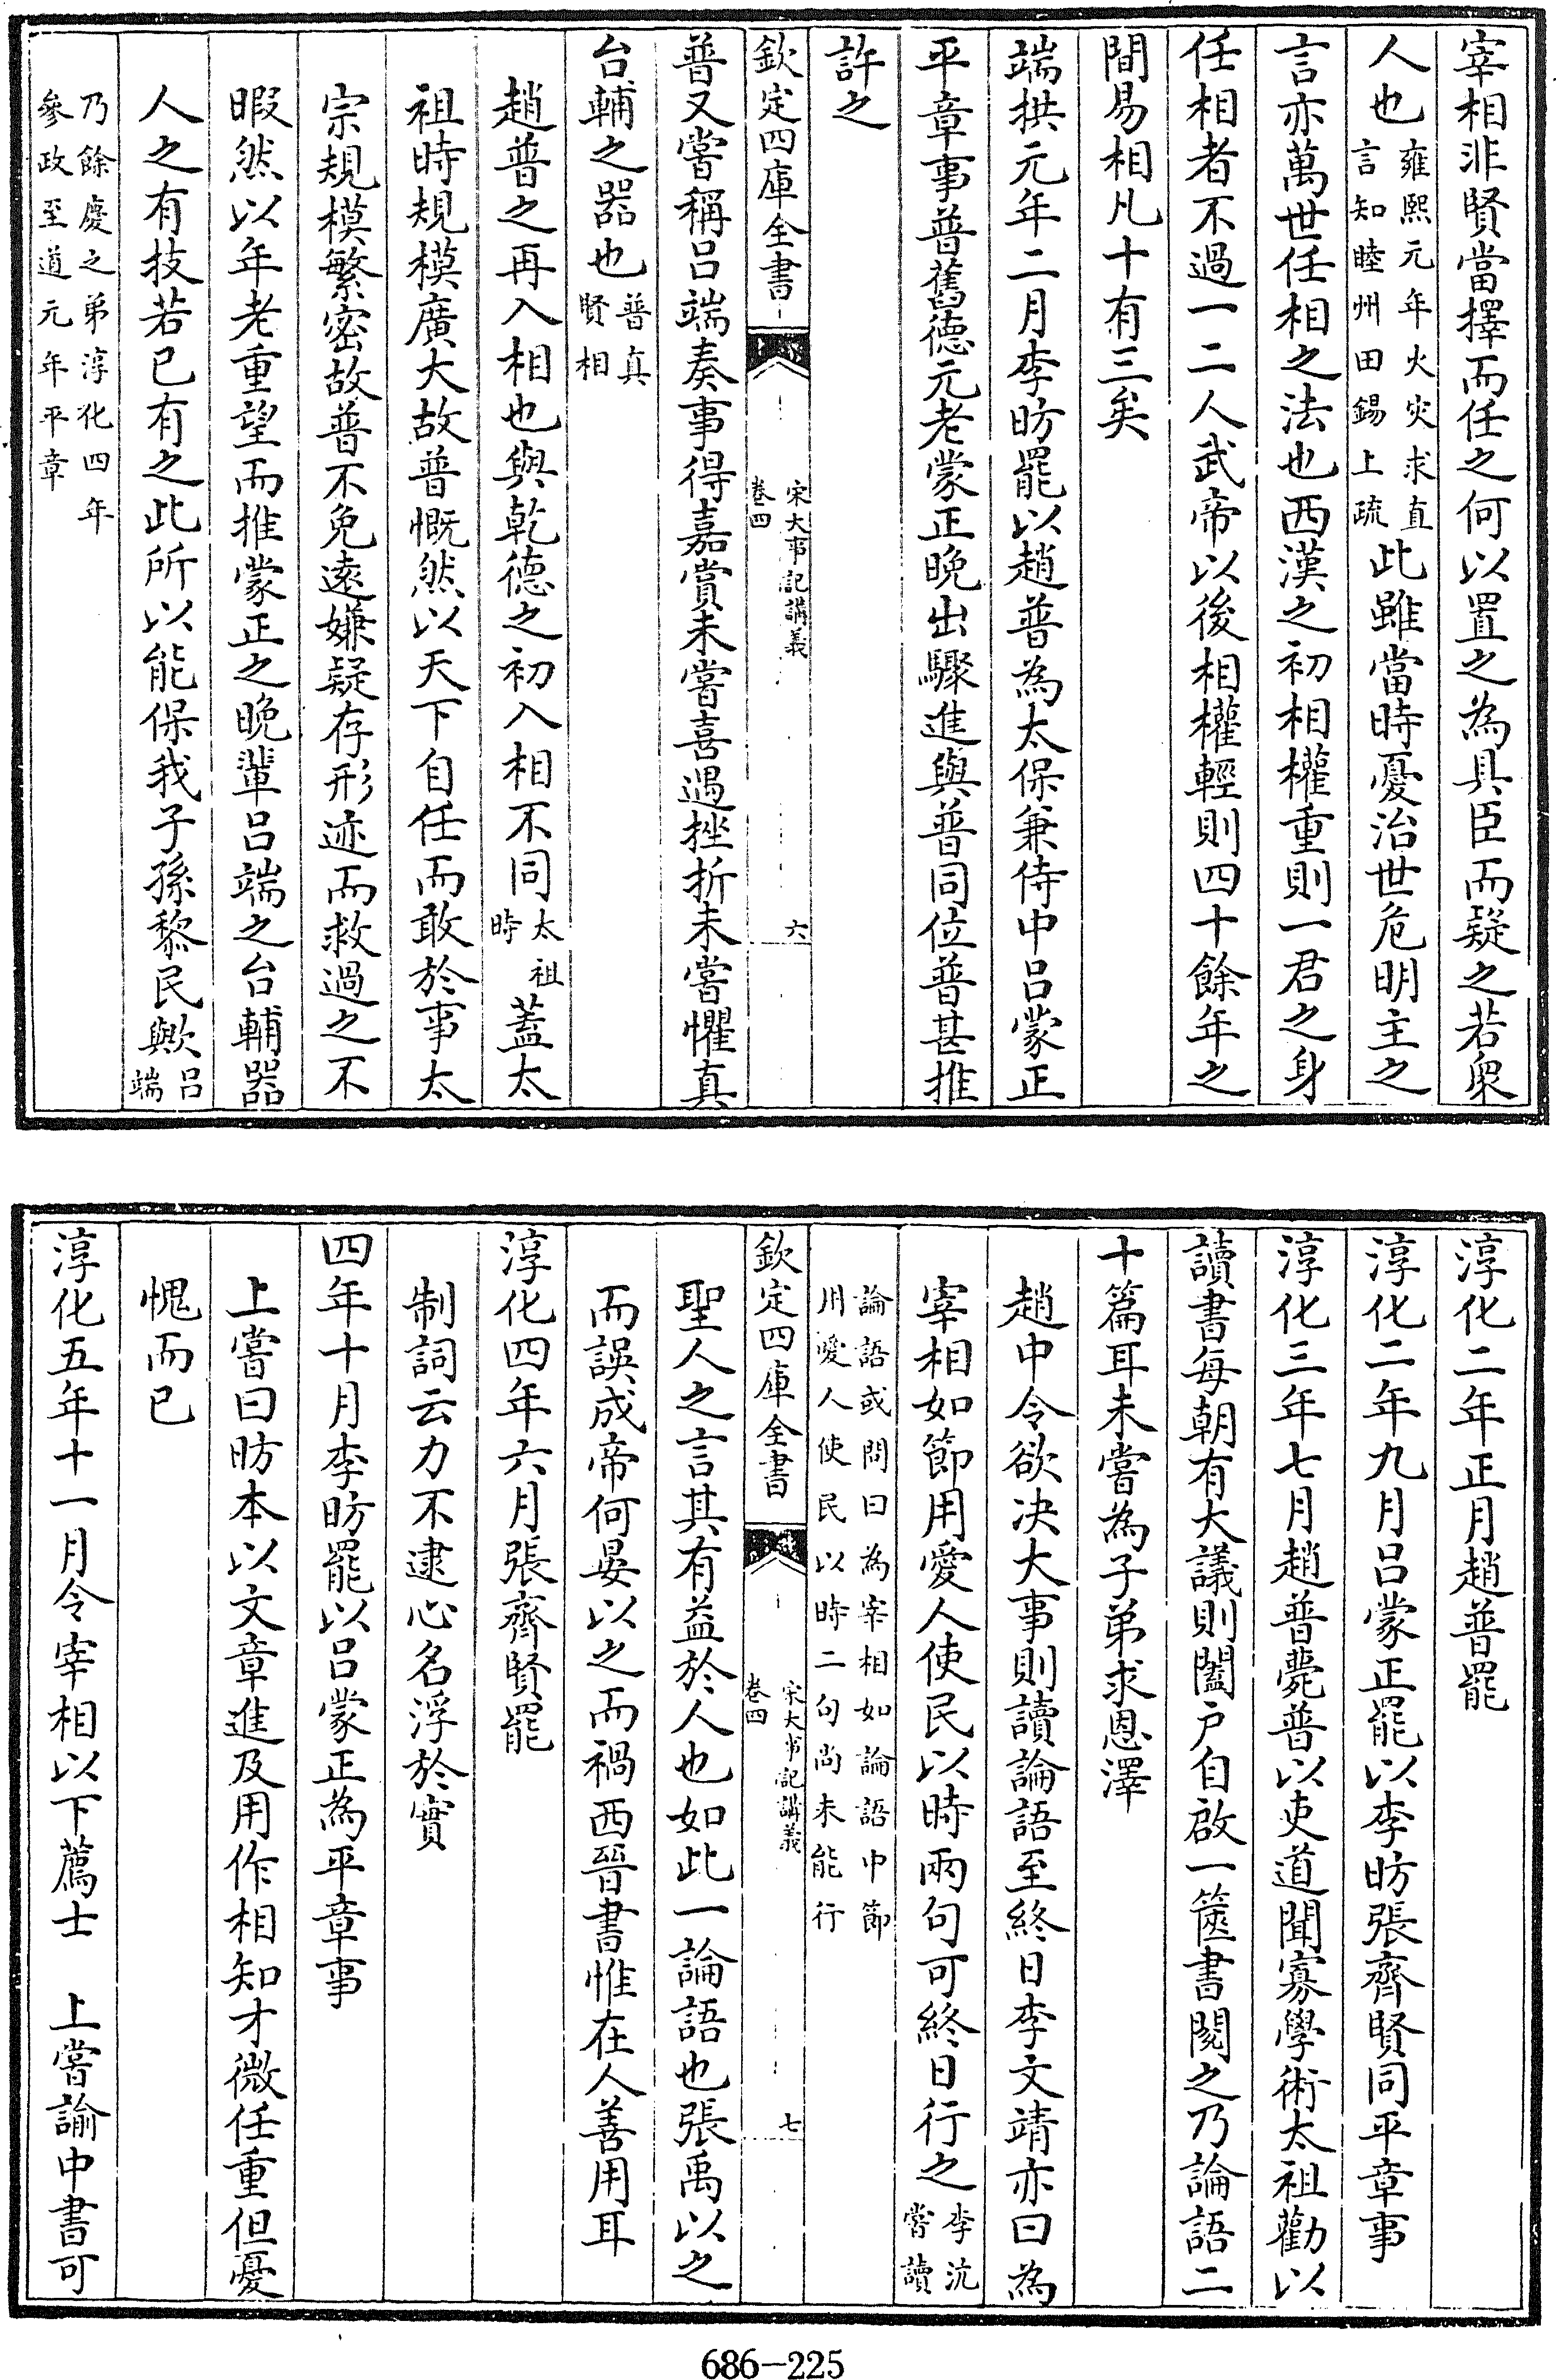 宰相非賢當擇而任之何以置之為具臣而疑之若衆
人也雍熙元年火灾求直言知睦州田錫上疏此雖當時憂治世危明主之
言亦萬世任相之法也西漢之初相權重則一君之身
任相者不過一二人武帝以後相權輕則四十餘年之
間易相凡十有三矣
端拱元年二月李昉罷以趙普為太保兼侍中吕蒙正
平章事普舊德元老蒙正晚出驟進與普同位普甚推
許之
欽定四庫全書
宋大事記講義
卷四
六
普又嘗稱吕端奏事得嘉賞未嘗喜遇挫折未嘗懼真
台輔之器也普真賢相
趙普之再入相也與乾德之初入相不同太祖時蓋太
祖時規模廣大故普慨然以天下自任而敢於事太
宗規模繁密故普不免遠嫌疑存形迹而救過之不
暇然以年老重望而推蒙正之晚輩吕端之台輔器
人之有技若已有之此所以能保我子孫黎民歟吕端
乃餘慶之弟淳化四年參政至道元年平章
淳化二年正月趙普罷
淳化二年九月吕蒙正罷以李昉張齊賢同平章事
淳化三年七月趙普薨普以吏道聞寡學術太祖勸以
讀書每朝有大議則闔户自啟一篋書閱之乃論語二
十篇耳未嘗為子弟求恩澤
趙中令欲决大事則讀論語至終日李文靖亦曰為
宰相如節用愛人使民以時兩句可終日行之李沆嘗讀
論語或問曰為宰相如論語中節用愛人使民以時二句尚未能行
欽定四庫全書
宋大事記講義
卷四
七
聖人之言其有益於人也如此一論語也張禹以之
而誤成帝何晏以之而禍西晉書惟在人善用耳
淳化四年六月張齊賢罷
制詞云力不逮心名浮於實
四年十月李昉罷以吕蒙正為平章事
上嘗曰昉本以文章進及用作相知才微任重但憂
愧而已
淳化五年十一月令宰相以下薦士　上嘗諭中書可
686-225